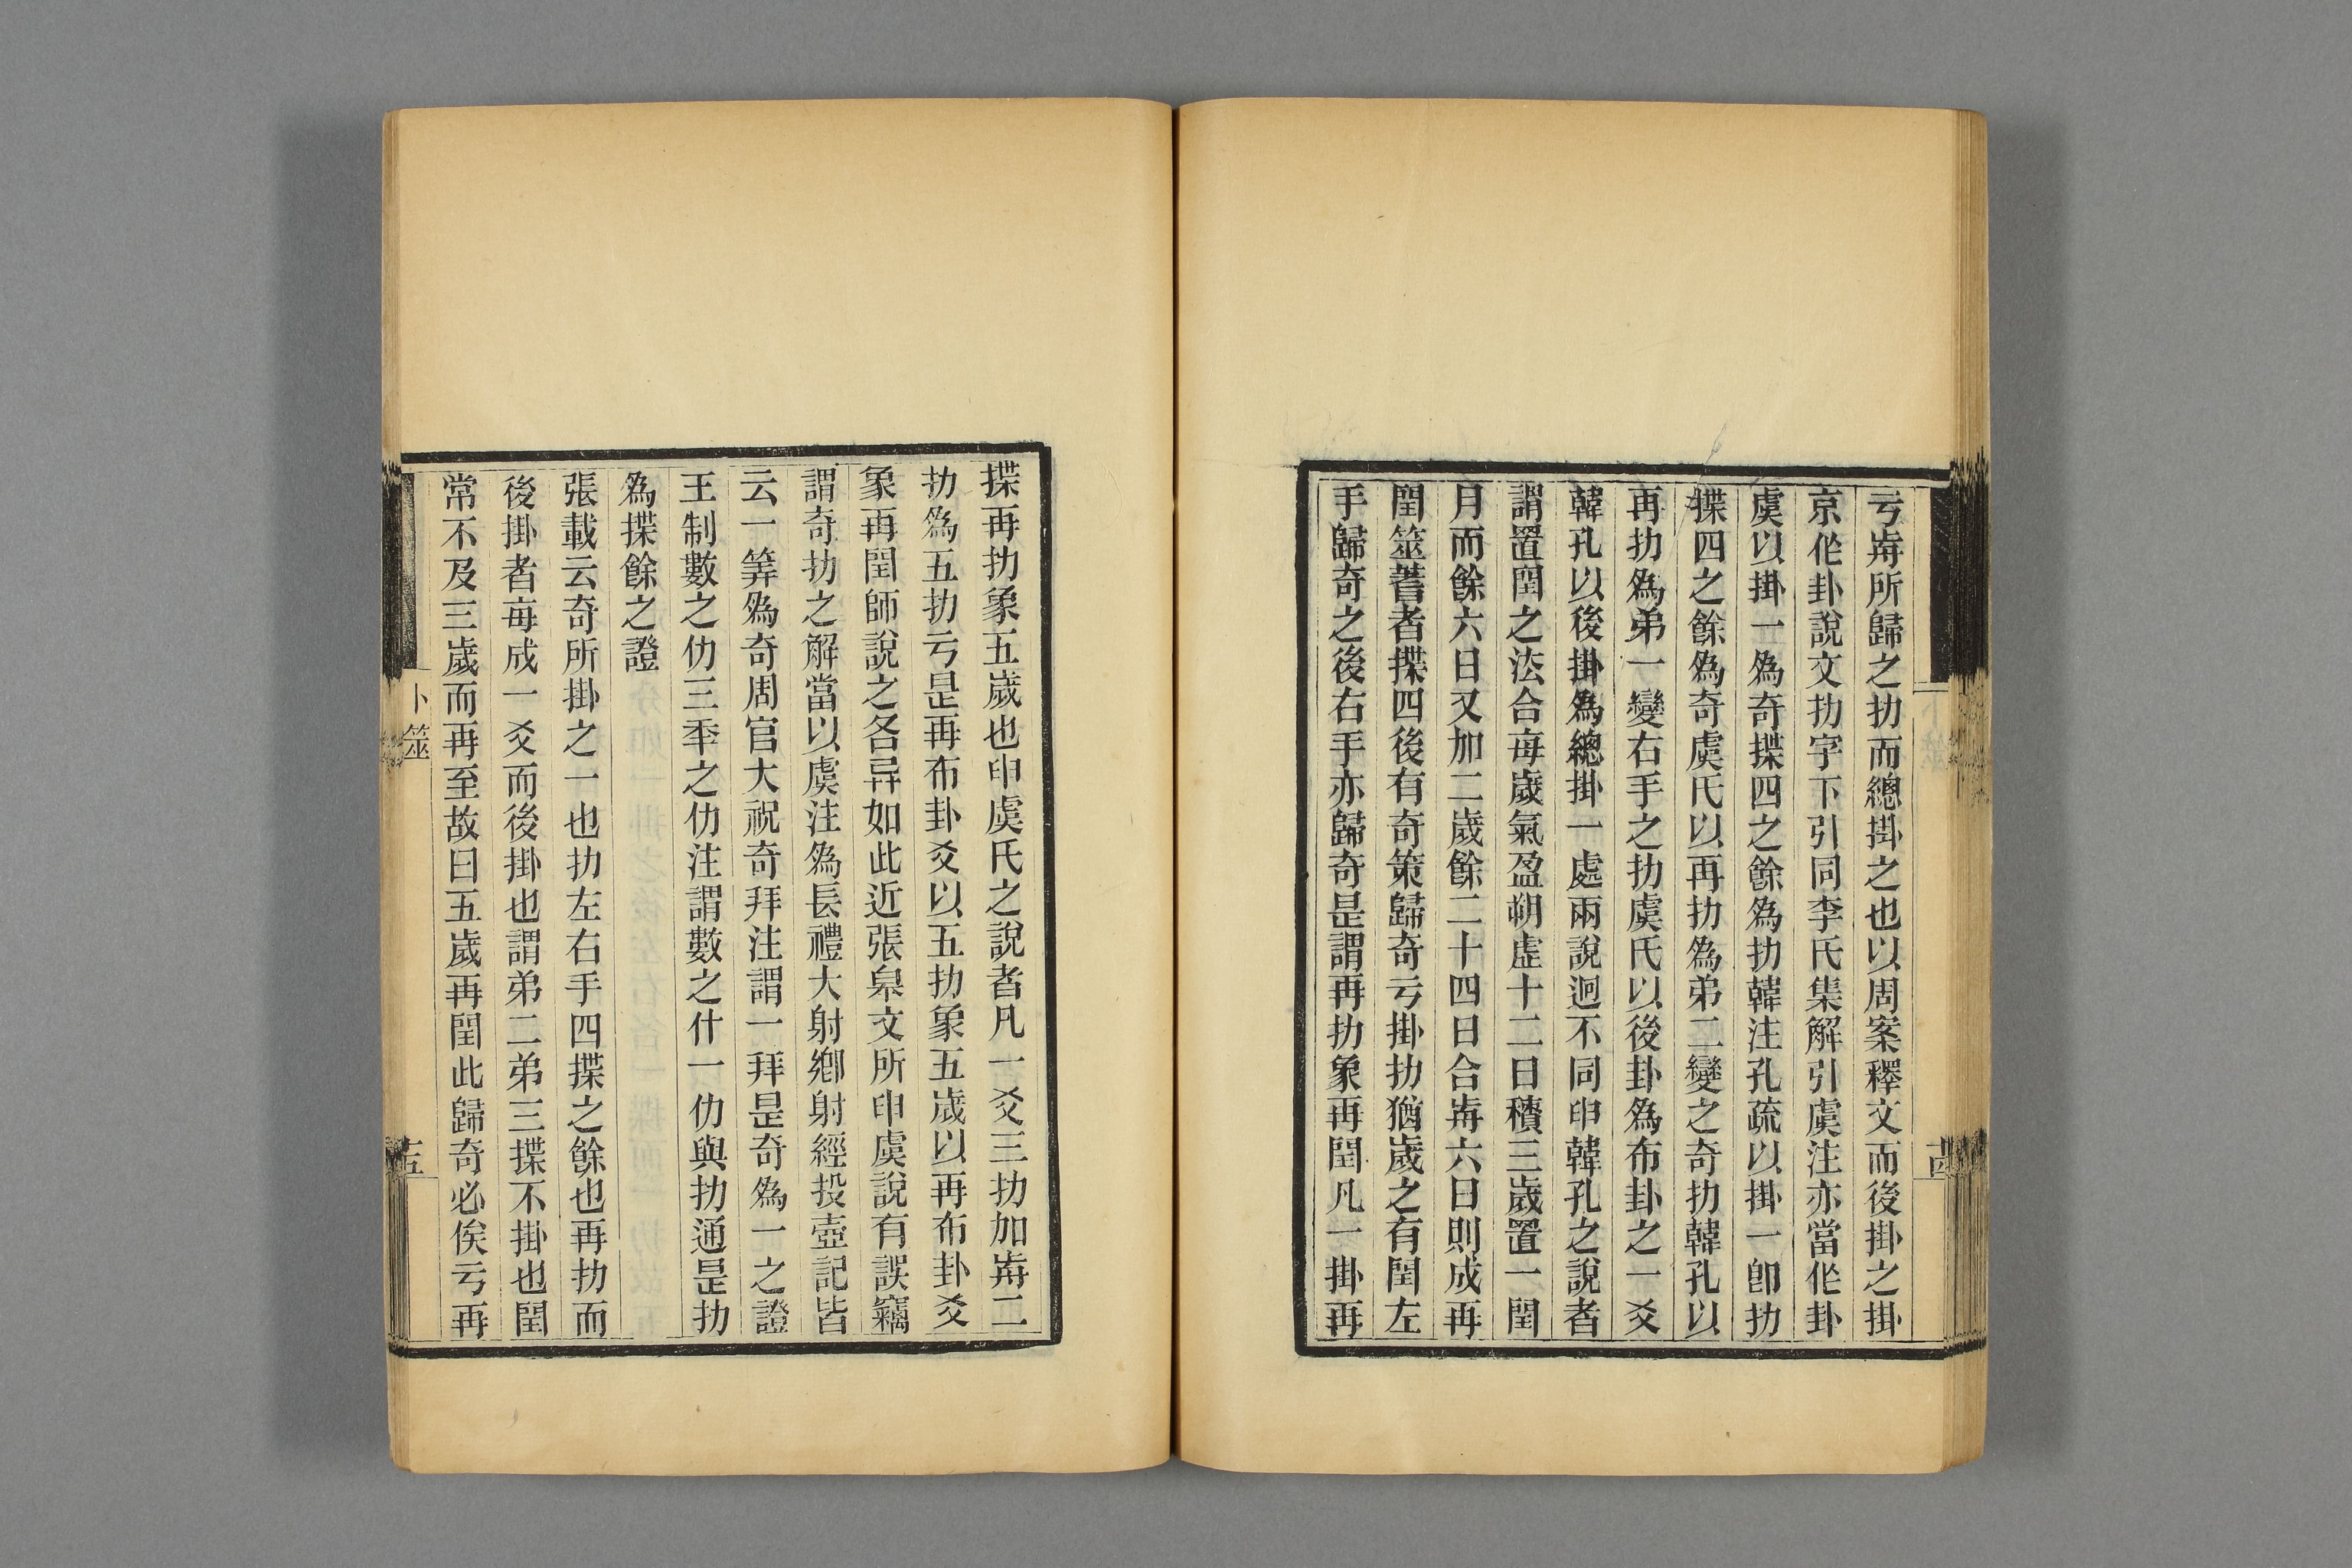 亏歬所歸之扐而總掛之也以周案釋文而後掛之掛
京㑅卦說文扐字下引同李氏集解引虞注亦當㑅卦
虞以掛一爲奇揲四之餘爲扐韓注孔疏以掛一卽扐
揲四之餘爲奇虞氏以再扐爲弟二變之奇扐韓孔以
再扐爲弟一變右手之扐虞氏以後卦爲布卦之一爻
韓孔以後掛爲總掛一處兩說迥不同申韓孔之說者
謂置閏之法合每歲氣盈朔虛十二日積三歲置一閏
月而餘六日又加二歲餘二十四日合歬六日則成再
閏筮蓍者揲四後有奇策歸奇亏掛扐猶歲之有閏左
手歸奇之後右手亦歸奇是謂再扐象再閏凡一掛再
揲再扐象五歲也申虞氏之說者凡一爻三扐加歬二
扐爲五扐亏是再布卦爻以五扐象五歲以再布卦爻
象再閏師說之各异如此近張皋文所申虞說有誤竊
謂奇扐之解當以虞注爲長禮大射鄕射經投壺記皆
云一筭爲奇周官大祝奇拜注謂一拜是奇爲一之證
王制數之仂三秊之仂注謂數之什一仂與扐通是扐
爲揲餘之證
張載云奇所掛之一也扐左右手四揲之餘也再扐而
後掛者每成一爻而後掛也謂弟二弟三揲不掛也閏
常不及三歲而再至故曰五歲再閏此歸奇必俟亏再
卜筮